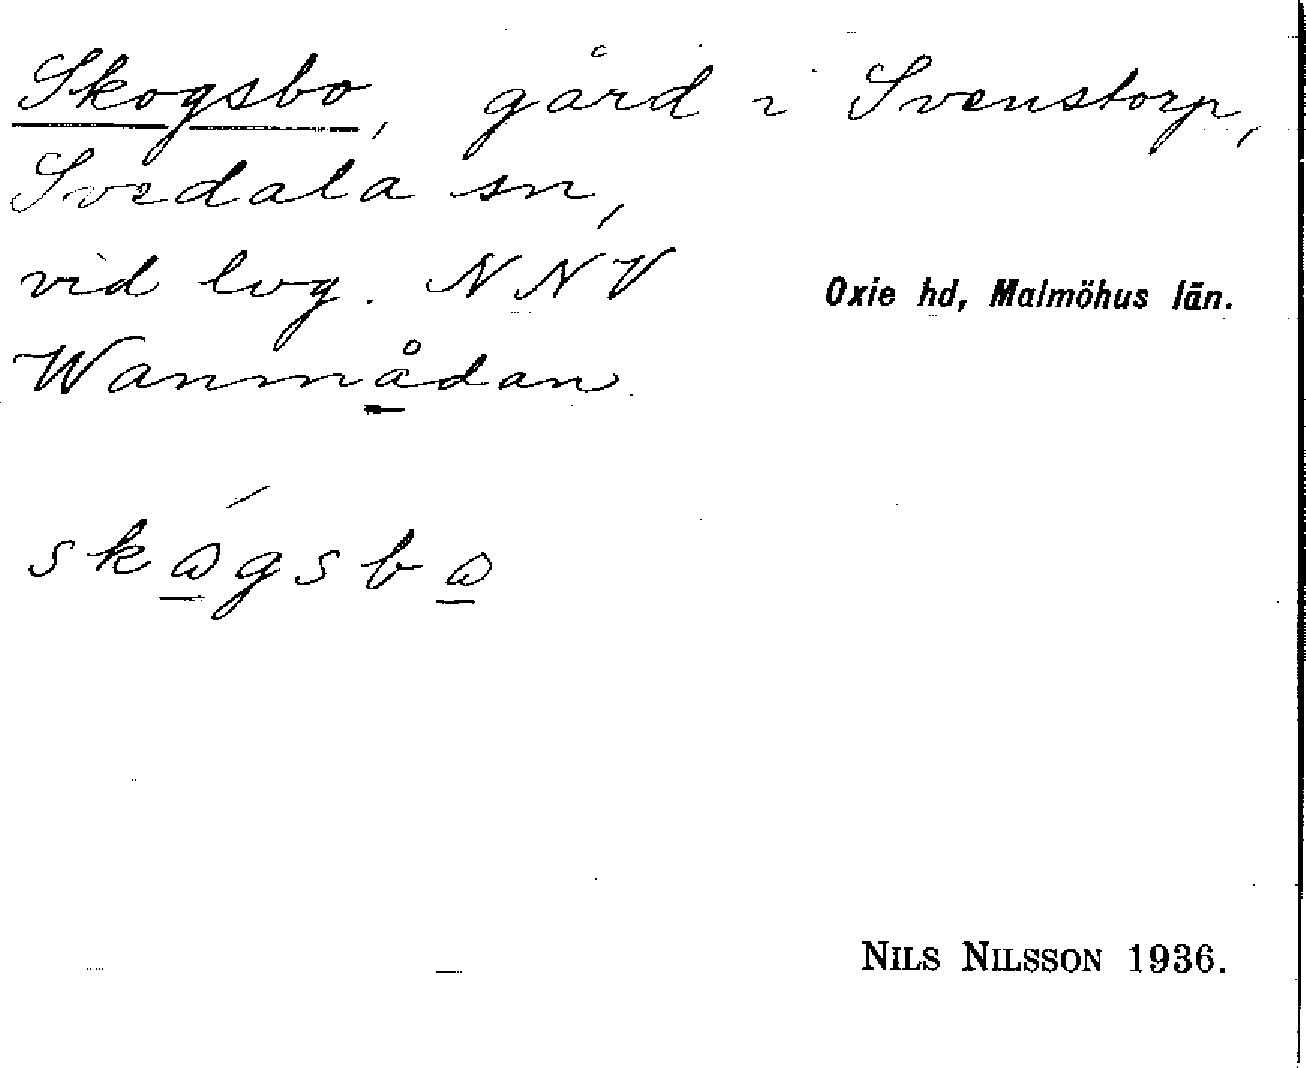 Skogsbo, gård i Svenstorp,
Svedala sn,
vid lvg. NNV
Oxie hd, Malmöhus län.
Wanmådan
NILS NILSSON 1936.